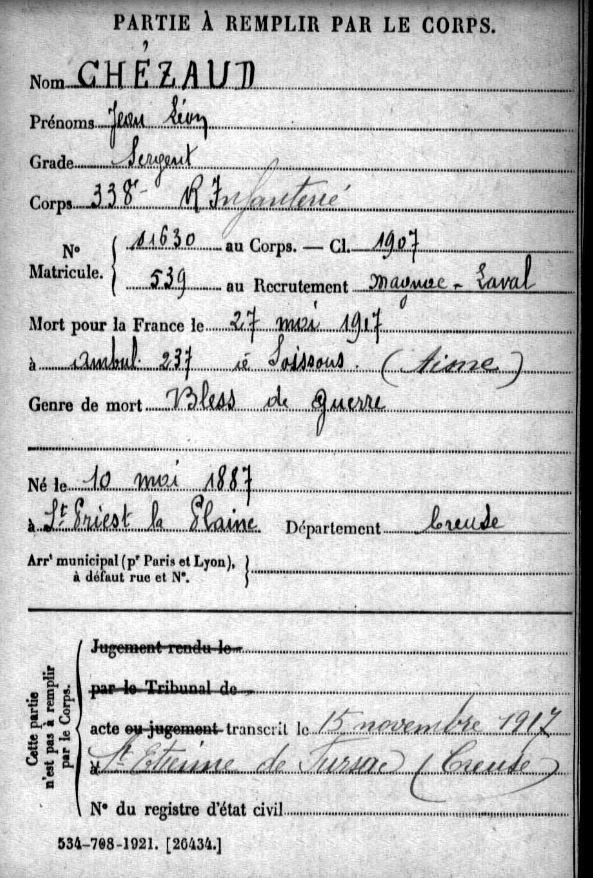 PARTIE À REMPLIR PAR LE CORPS.
Nom CHÉZAUD
Prénoms Jean Léon
Grade Sergent
Corps 338e R Infanterie
N° Matricule. 01630 au Corps. — Cl. 1907
539 au Recrutement Magnac-Laval
Mort pour la France le 27 mai 1917
à ambul. 237 à Soissons. (Aisne)
Genre de mort Bless de guerre
Né le 10 mai 1887
à St Priest la Plaine Département Creuse
Arrt municipal (pr Paris et Lyon), à défaut rue et N°.
Cette partie n'est pas à remplir par le Corps.
Jugement rendu le
par le Tribunal de
acte ou jugement transcrit le 15 novembre 1917
à St Etienne de Fursac (Creuse)
N° du registre d'état civil
534-708-1921. [26434.]